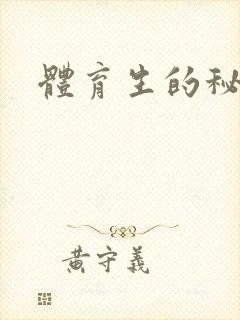 體育生的秘
黃守義